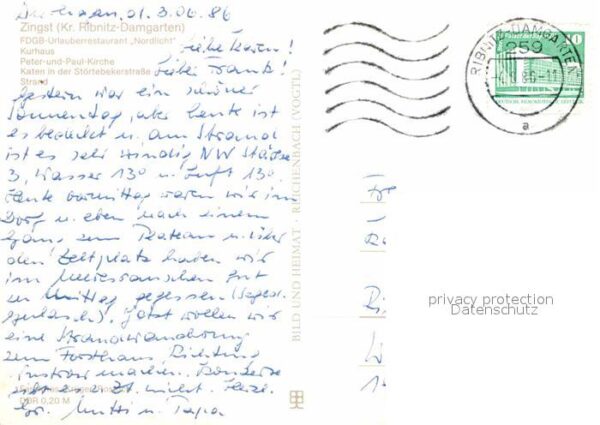 3.06.86
Zingst (Kr. Ribnitz-Damgarten)
FDGB-Urlauberrestaurant „Nordlicht"
Kurhaus
Peter-und-Paul-Kirche
Katen in der Störtebekerstraße
Strand
Liebe Karen!
Lieber Frank!
Gestern war ein schöner
Sonnentag, aber heute ist
es bedeckt u. am Strand
ist es sehr windig NW Stärke
3, Wasser 13° u. Luft 13°.
Heute vormittag waren wir im
Dorf u. eben nach einem
Gang zum u. über
den Zeltplatz haben wir
im Meeresrauschen gut
zu Mittag gegessen
Jetzt wollen wir
eine Strandwanderung
zum Forsthaus, Richtung
machen. Besonderes
gibt es z. Zt. nicht. Herzl.
Gr. Mutti u. Papa
DDR 0,20 M
BILD UND HEIMAT · REICHENBACH (VOGTL)
RIBNITZ-DAMGARTEN
259
a
10
privacy protection
Datenschutz